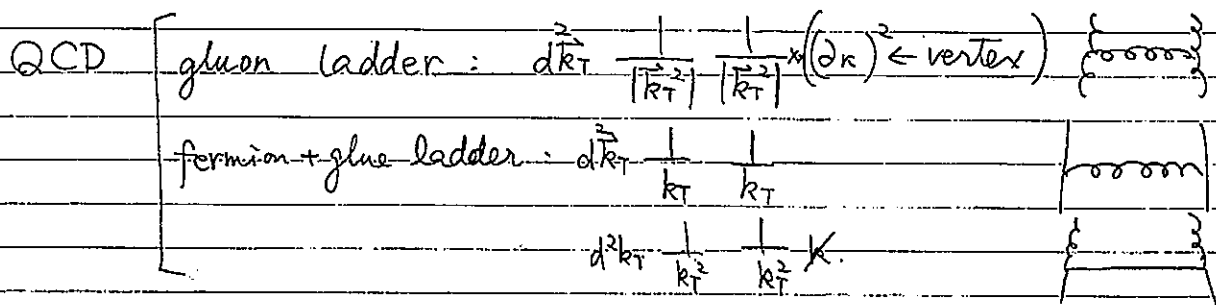 QCD gluon ladder : d²k⃗_T 1/|k⃗_T²| 1/|k⃗_T²| × ((∂κ)² ← vertex)
fermion + glue ladder : d²k⃗_T 1/k_T 1/k_T
d²k_T 1/k_T² 1/k_T² k̸.